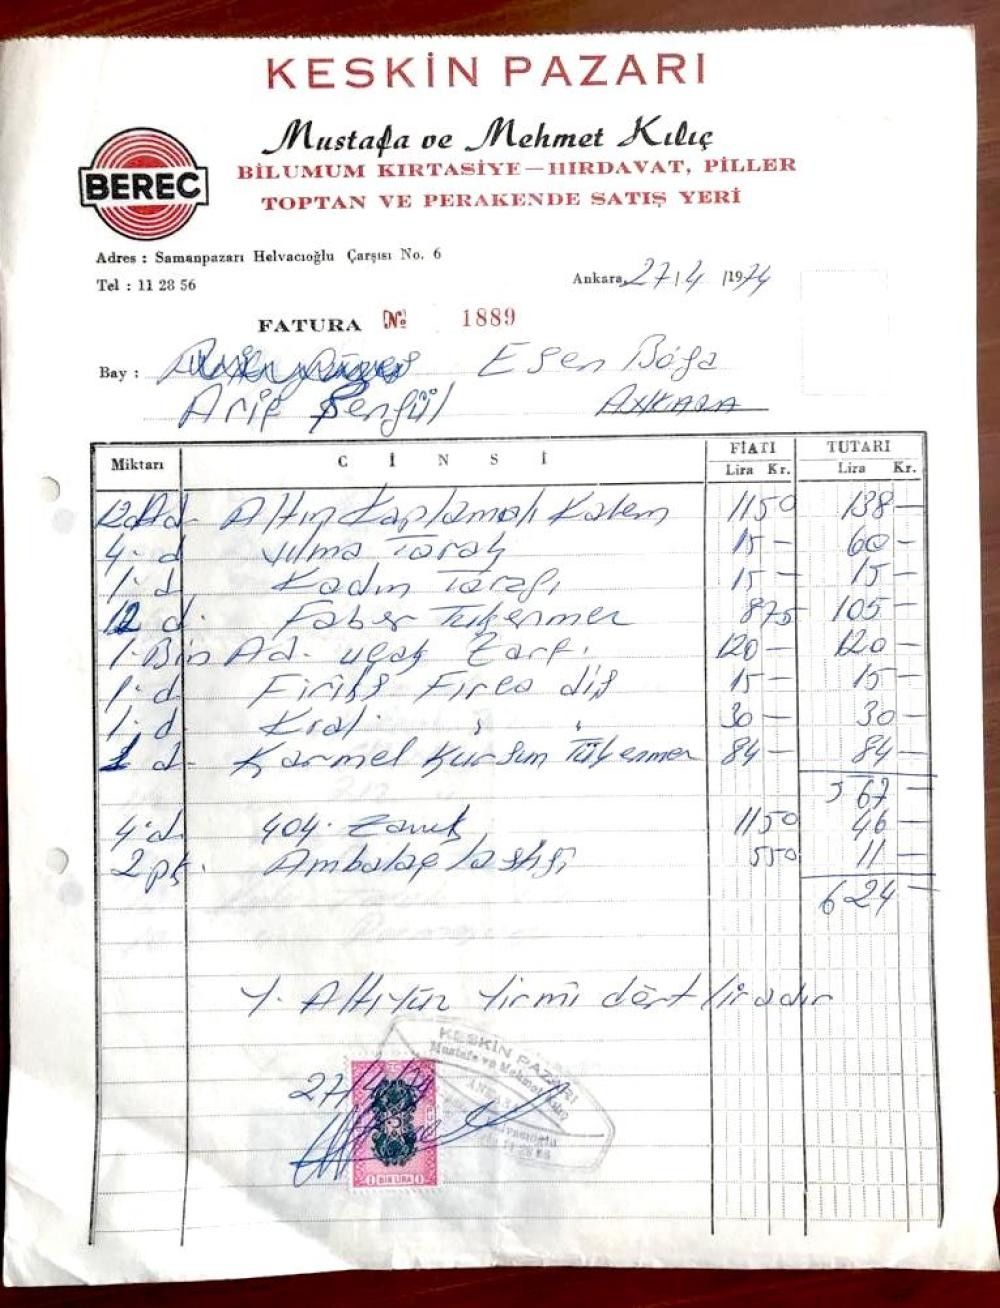 KESKİN PAZARI
Mustafa ve Mehmet Kılıç
BEREC
BİLUMUM KIRTASİYE—HIRDAVAT, PİLLER
TOPTAN VE PERAKENDE SATIŞ YERİ
Adres : Samanpazarı Helvacıoğlu Çarşısı No. 6
Tel : 11 28 56
Ankara, 27/4/1974
FATURA No 1889
Bay : Esen Böğa
Arif Şengül ANKARA
Miktarı CİNSİ FİATI Lira Kr. TUTARI Lira Kr.
12 Ad- Altın Kaplamalı Kalem 1150 138—
4- d Tarağ 15— 60—
1- d Kadın Tarağı 15— 15—
12 d. Faber Tükenmez 875 105—
1. Bin Ad- uçak Zarfı 120— 120—
1- d Fırça diş 15— 15—
1. d. Kral " " 30— 30—
1 d- Karmel Kurşun Tükenmez 84— 84—
567—
4- d. 404. 1150 46—
2 pk. Ambalaç lastiği 550 11—
624—
Y. Altıyüz Yirmi dört liradır
KESKİN PAZARI
Mustafa ve Mehmet Kılıç
27/4/74
BİR LİRA